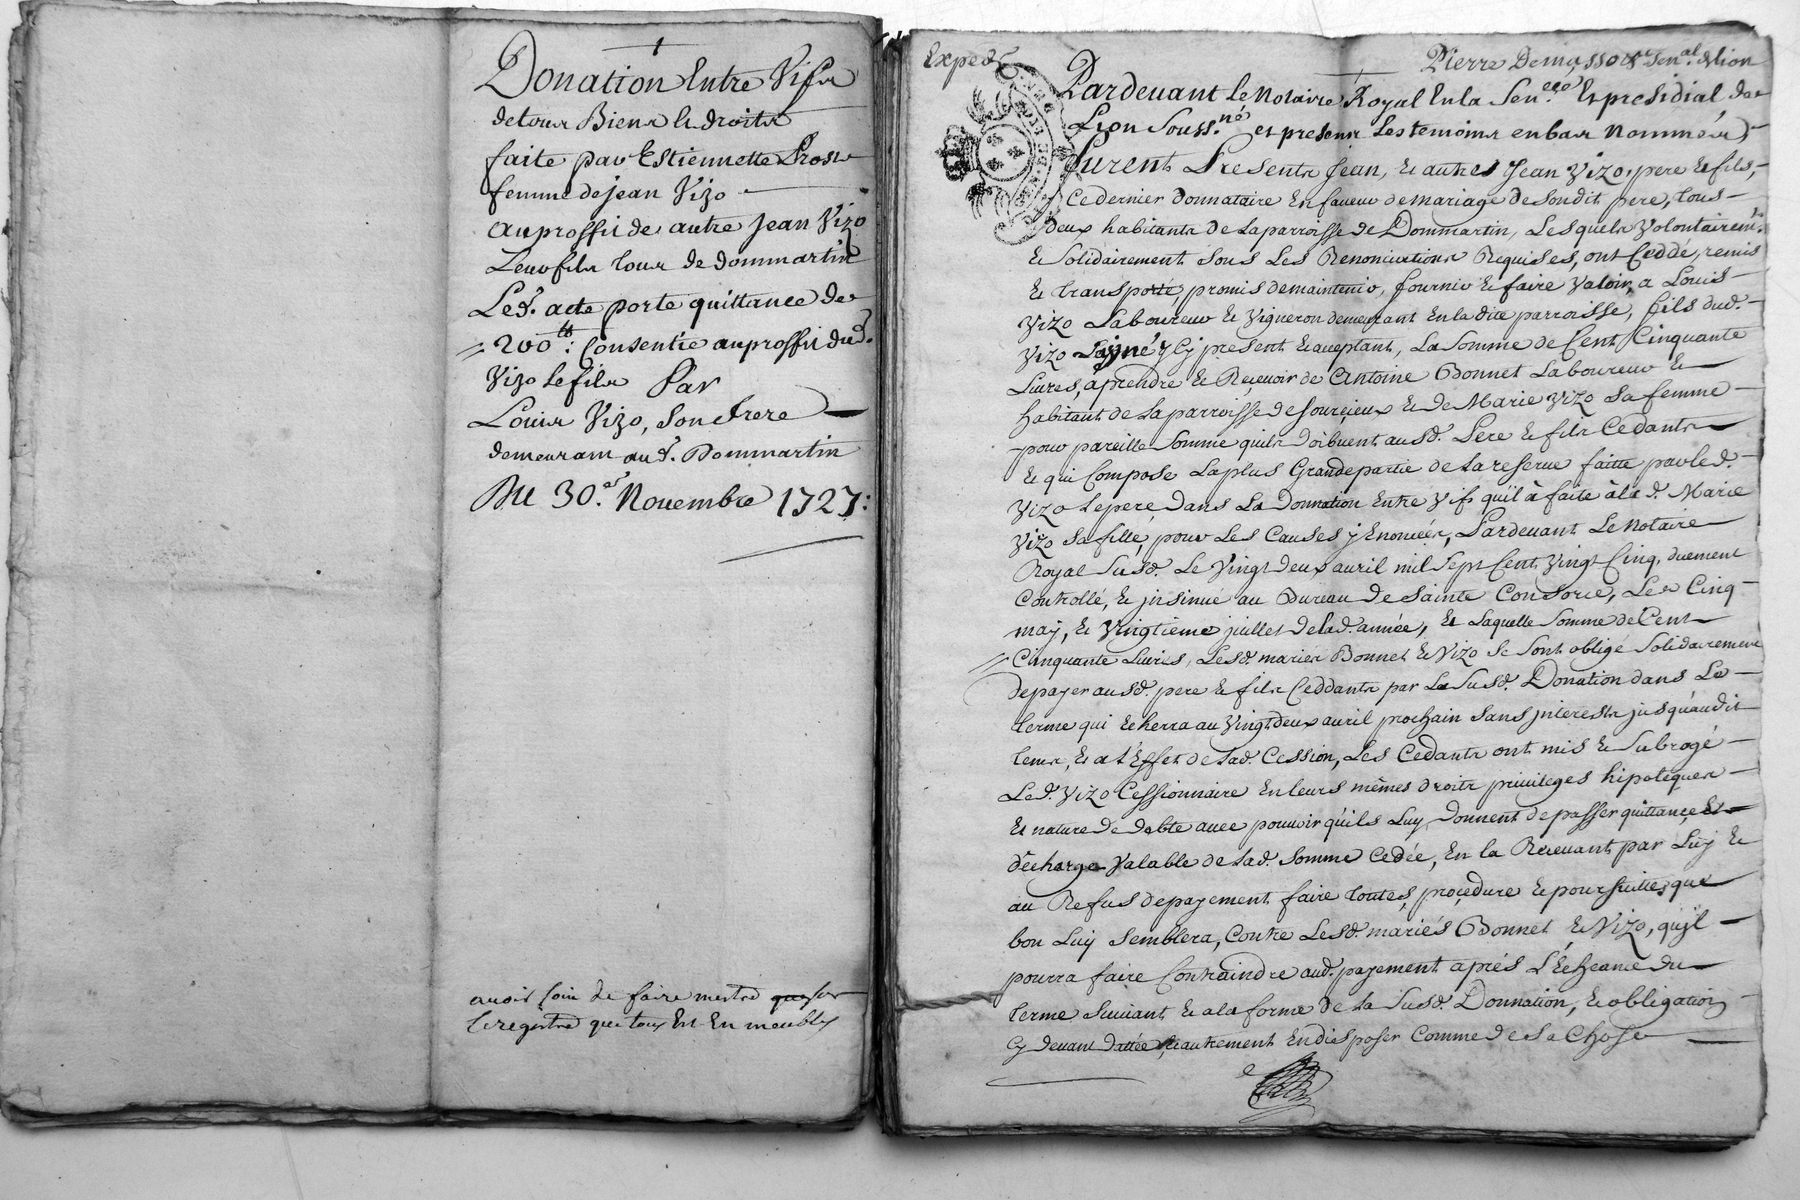 Donation Entre Vifs
de tous Biens & droits
faite par Estiennette Prost
femme de jean Vizo
au proffit de autre Jean Vizo
Leur fils tous de dommartin
Led. acte porte quittance de
200 tt: Consentie au proffit dud.
Vizo le fils Par
Louis Vizo, son frere
demeurant aud. Dommartin
Du 30.e Novembre 1727:
avoir soin de faire mettre
le registre que tous Est En meubles
Exped.
Pierre Demasso sen.al de Lion
Pardevant Le Notaire Royal En la Sen.ée Et presidial de
Lion souss.né et presens Les temoins en bas Nommés
furent Presents Jean, & autres Jean Vizo, pere & fils,
Ce dernier donnataire En faveur de mariage de sondit pere, tous
deux habitants de La parroisse de Dommartin, Lesquels Volontairem.t
& solidairement sous Les Renonciations Requises, ont Ceddé, remis
& transporté, promis de maintenir, fournir & faire Valoir, a Louis
Vizo Laboureur & Vigneron demeurant En la dite parroisse, fils dud.
Vizo L'ayné y Cy present & acceptant, La somme de Cent Cinquante
Livres, a prendre & Recevoir de Antoine Bonnet Laboureur &
habitant de La parroisse de sourcieux & de Marie Vizo sa femme
pour pareille somme quils doibvent ausd. Pere & fils Cedants
& qui Compose La plus Grande partie de La reserve faitte par led.
Vizo le pere, dans La Donnation Entre Vifs qu'il à faite à lad. Marie
Vizo sa fille, pour Les Causes y Enoncées, Pardevant Le Notaire
Royal susd. Le Vingt deux avril mil sept Cent Vingt Cinq, duement
Controllé, & jnsinué au Bureau de Sainte Consorce, Les Cinq
may, & Vingtieme juillet de lad. année, & Laquelle somme de Cent
Cinquante Livres, Lesd. mariés Bonnet & Vizo se sont obligé solidairement
de payer ausd. pere & fils Ceddants par La susd. Donation dans Le
terme qui Echerra au Vingt deux avril prochain sans jnterests jusqu'audit
tems, & a l'Effet de lad. Cession, Les Cedants ont mis & subrogé
Led. Vizo Cessionnaire En leurs mêmes droits privileges hipoteques
Et nature de debte avec pouvoir qu'ils Luy Donnent de passer quittance &
décharge Valable de lad. somme Cedée, En la Recevant par Luy &
au Refus de payement faire toutes procedure & poursuittes que
bon Luy semblera, Contre Lesd. mariés Bonnet & Vizo, qu'jl
pourra faire Contraindre aud. payement aprés L'Echeance du
terme suivant & a la forme de la susd. Donnation, & obligation
Cy devant dattée & autrement En disposer Comme de sa Chose